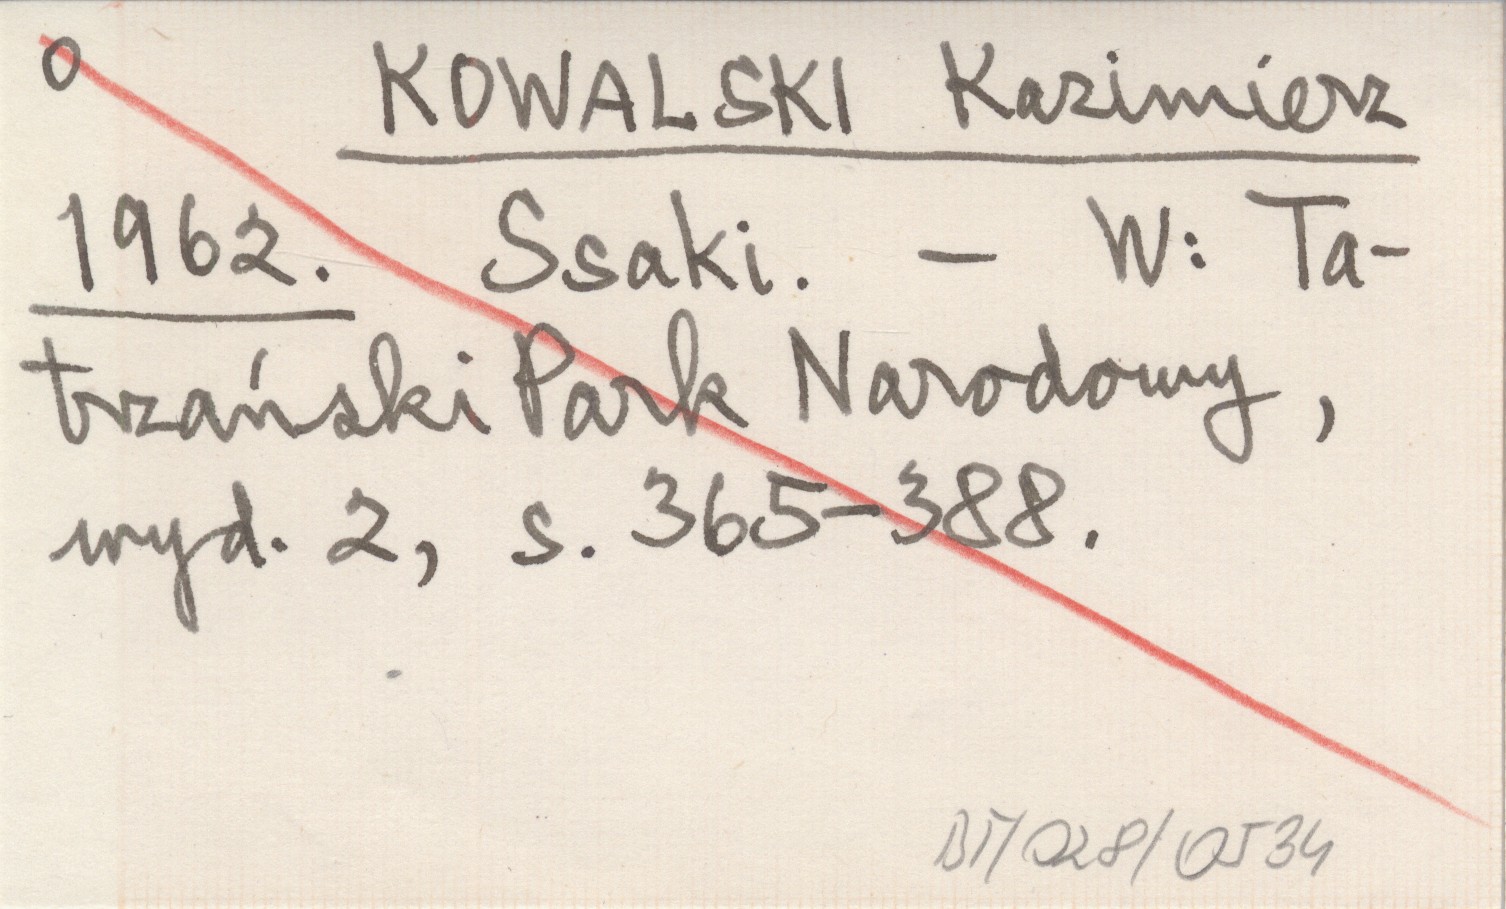 O KOWALSKI Kazimierz
1962. Ssaki. – W: Ta-
trzański Park Narodowy,
wyd. 2, s. 365–388.
BT/028/0534